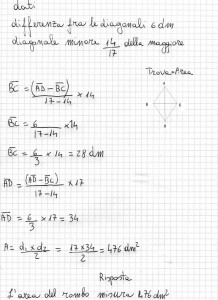 dati
differenza fra le diagonali 6 dm
diagonale minore 14/17 della maggiore
Trova: Area
BC = (AD - BC) / 17-14 × 14
BC = 6 / 17-14 × 14
BC = 6/3 × 14 = 28 dm
AD = (AD - BC) / 17-14 × 17
AD = 6/3 × 17 = 34
A = d1 × d2 / 2 = 17 × 34 / 2 = 476 dm²
Risposta
L'area del rombo misura 476 dm²